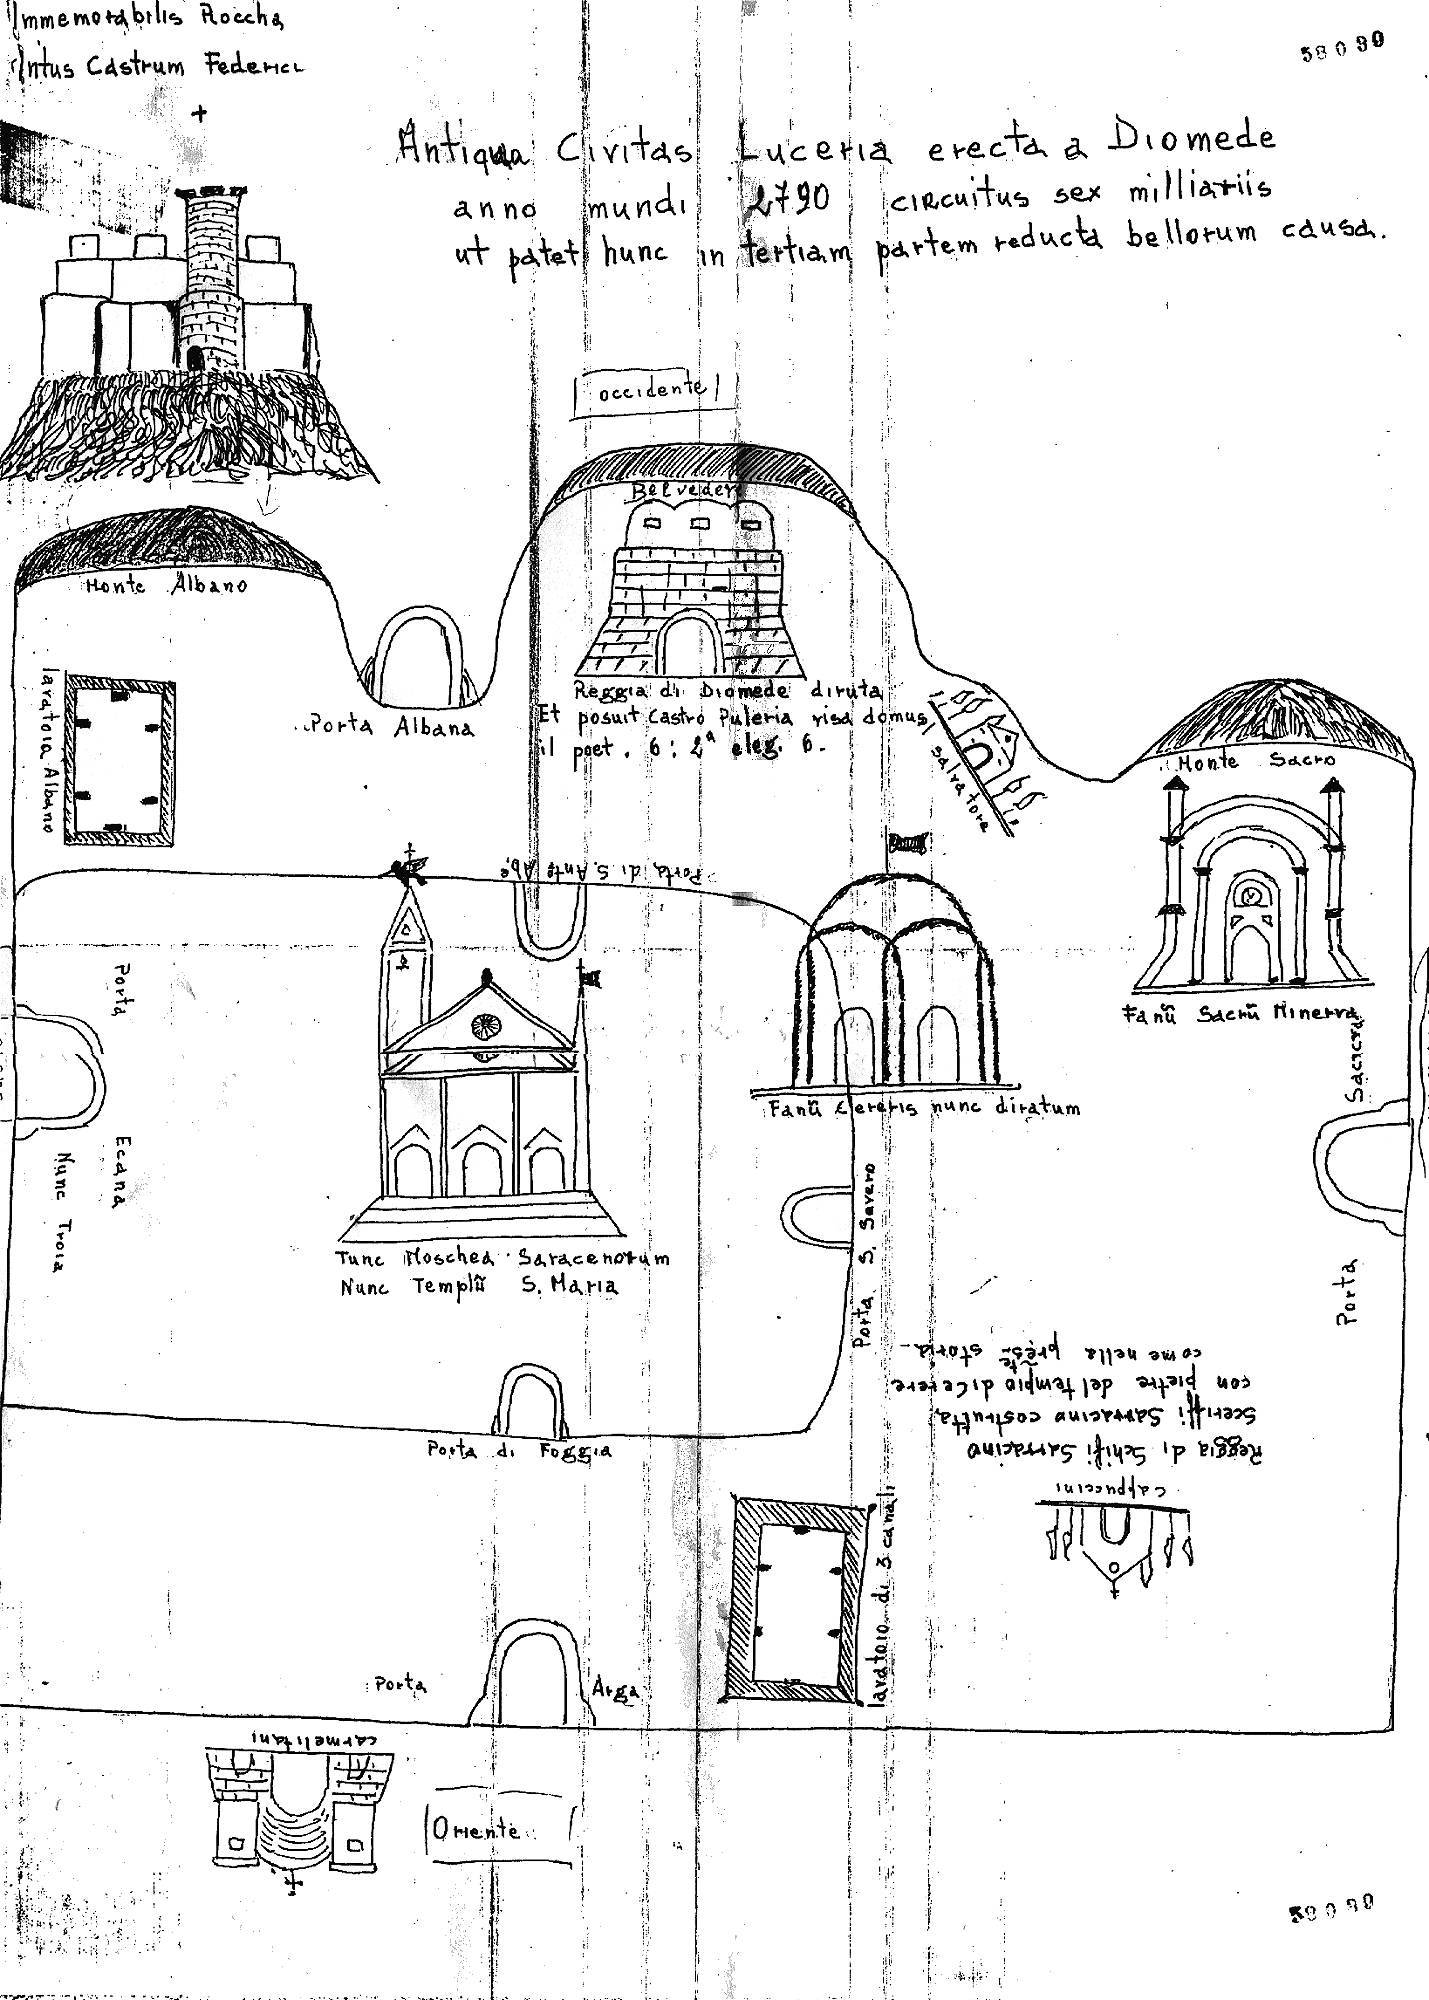 Immemorabilis Roccha
Intus Castrum Federici
58080
Antiqua Civitas Luceria erecta a Diomede
anno mundi 2790 circuitus sex milliariis
ut patet hunc in tertiam partem reducta bellorum causa.
occidente
Belvedere
Monte Albano
lavatoia Albano
Porta Albana
Reggia di Diomede diruta
Et posuit Castro Puleria risa domus
il poet. 6: 2ª eleg. 6.
salvatore
Monte Sacro
Porta di S. Anto Abe.
Fanũ Sacrũ Minerva
Porta Sacrera
Fanũ Cereris nunc diratum
Porta Ecana
Nunc Troia
Tunc Moschea Saracenorum
Nunc Templũ S. Maria
Porta S. Severo
Porta di Foggia
Reggia di Schifi Sarracino
Sceriffi Sarracino costrutta
con pietre del tempio di Cerere
come nella pres.te storia.
cappuccini
lavatoio di 3 canali
Porta Arga
carmelitani
Oriente